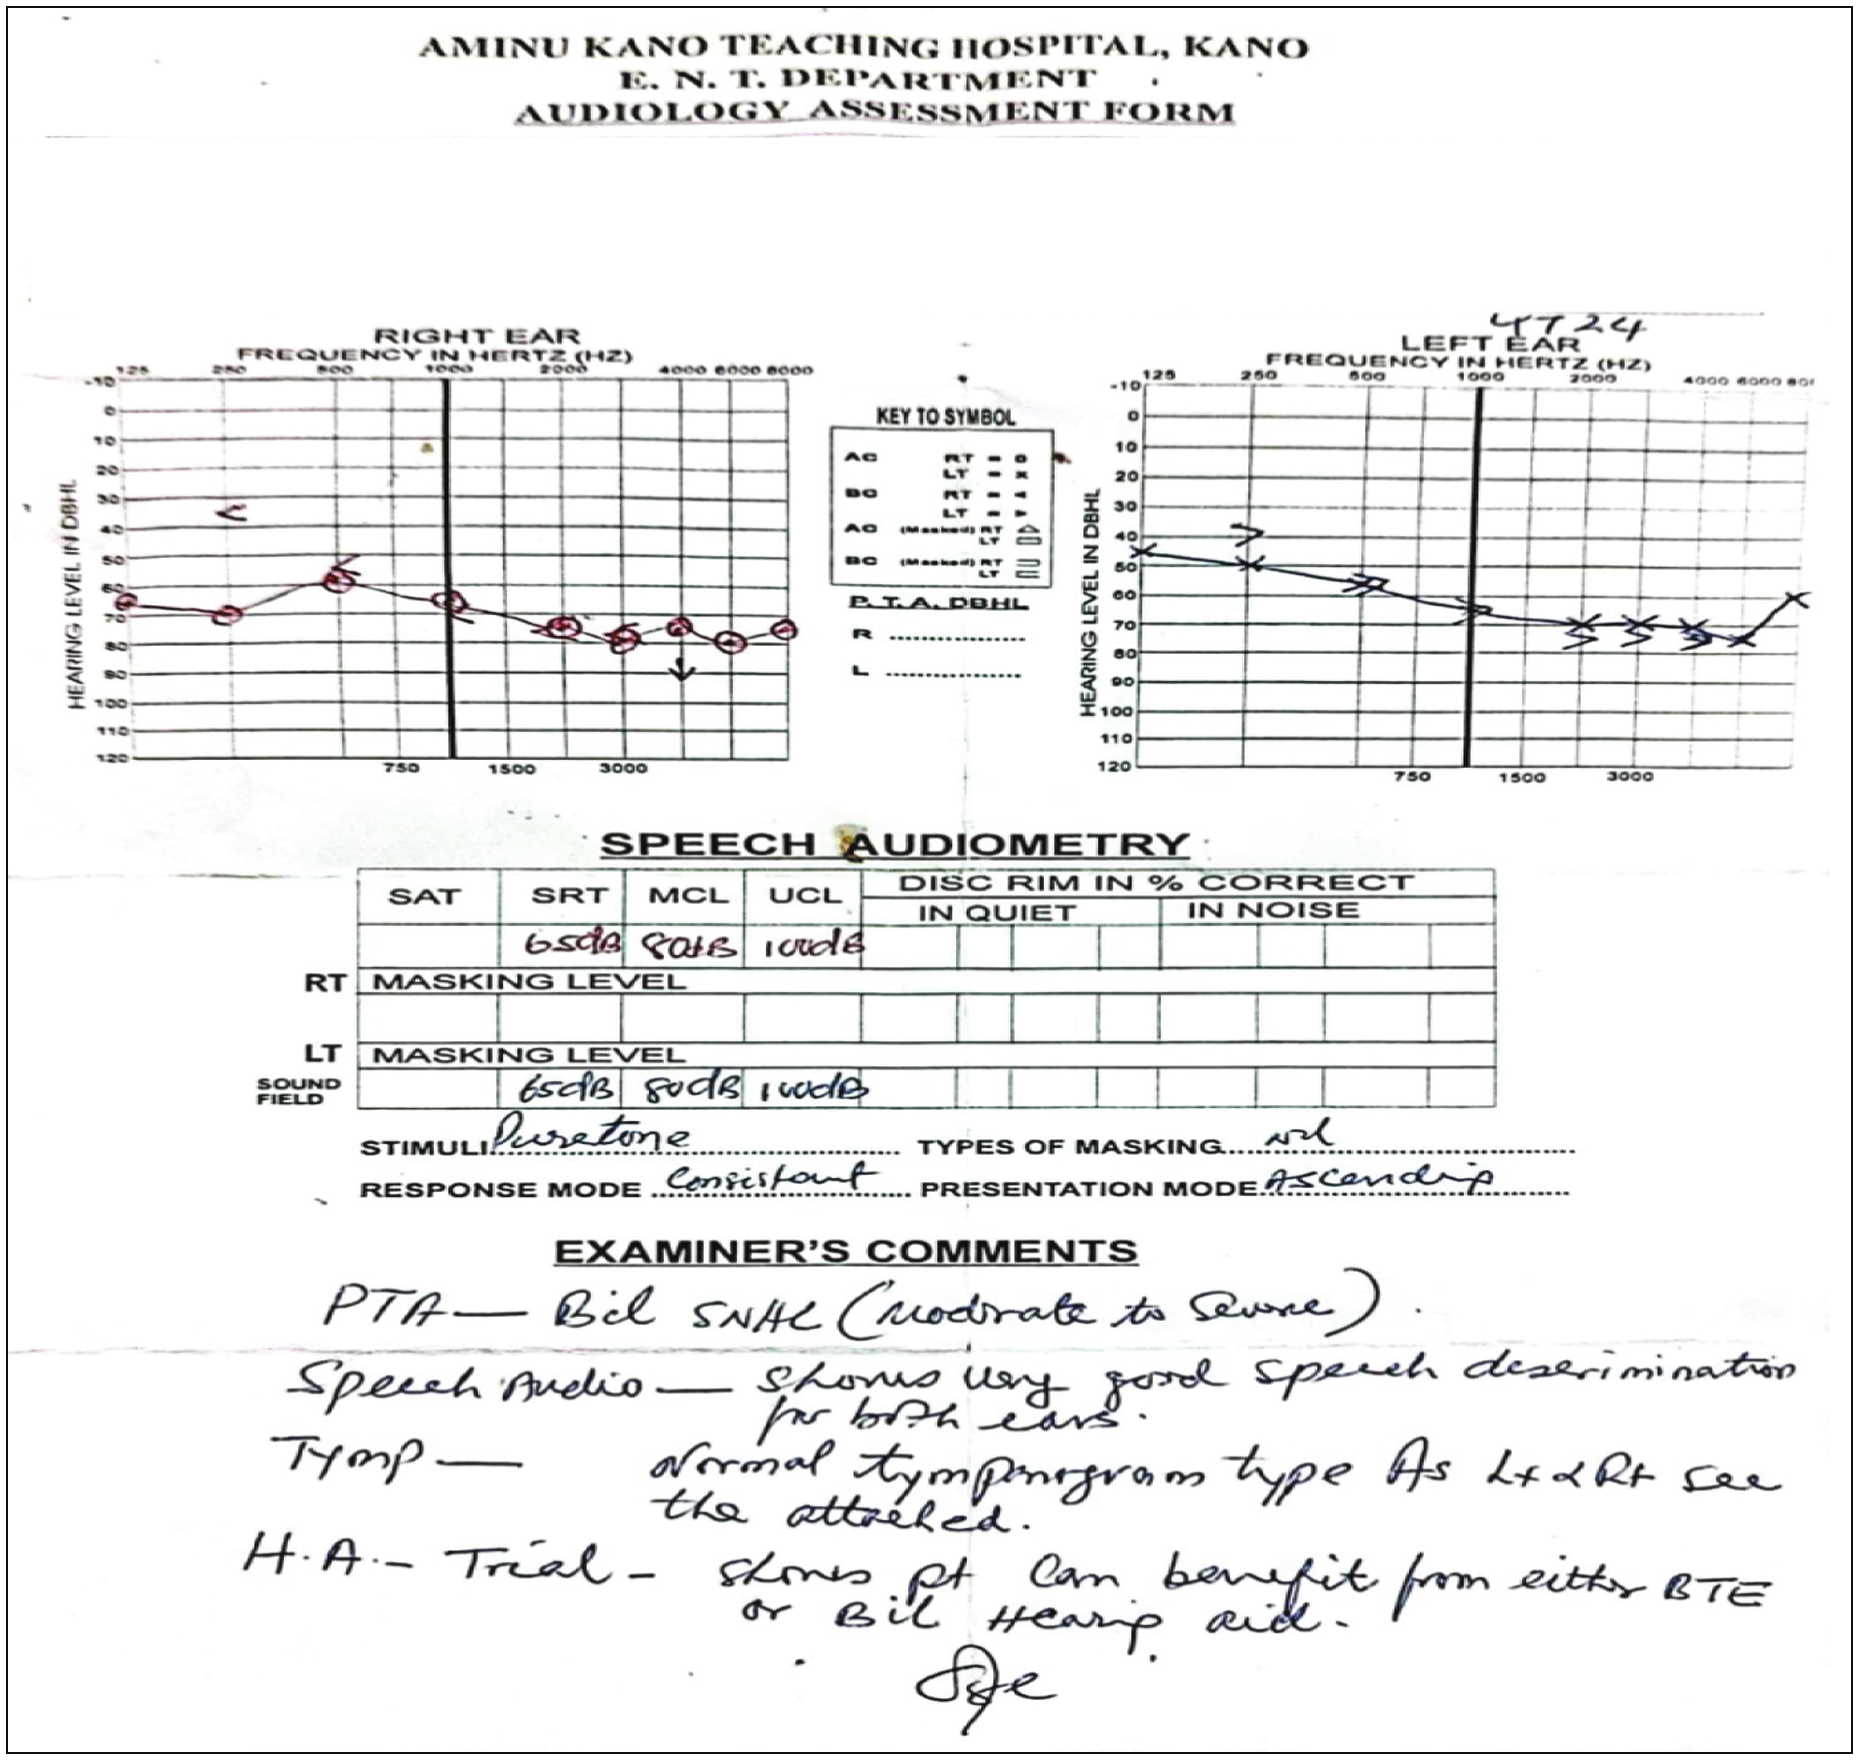 AMINU KANO TEACHING HOSPITAL, KANO
E. N. T. DEPARTMENT
AUDIOLOGY ASSESSMENT FORM
RIGHT EAR
FREQUENCY IN HERTZ (HZ)
125 250 500 1000 2000 4000 6000 8000
HEARING LEVEL IN DBHL
-10
0
10
20
30
40
50
60
70
80
90
100
110
120
750 1500 3000
KEY TO SYMBOL
AC RT =
LT =
BC RT =
LT =
AC (Masked) RT
LT
BC (Masked) RT
LT
P.T.A. DBHL
R
L
LEFT EAR
FREQUENCY IN HERTZ (HZ)
125 250 500 1000 2000 4000 6000 800
HEARING LEVEL IN DBHL
-10
0
10
20
30
40
50
60
70
80
90
100
110
120
750 1500 3000
SPEECH AUDIOMETRY
SAT SRT MCL UCL DISC RIM IN % CORRECT
IN QUIET IN NOISE
65dB 80dB 100dB
RT MASKING LEVEL
LT MASKING LEVEL
SOUND FIELD 65dB 80dB 100dB
STIMULI Puretone TYPES OF MASKING Nil
RESPONSE MODE Consistant PRESENTATION MODE Ascending
EXAMINER'S COMMENTS
PTA — Bil SNHL (Moderate to Severe).
Speech Audio — Shows very good speech descrimination
for both ears.
Tymp — Normal tympanogram type As Lt & Rt see
the attached.
H.A. - Trial - shows pt can benefit from either BTE
or Bil Hearing aid.